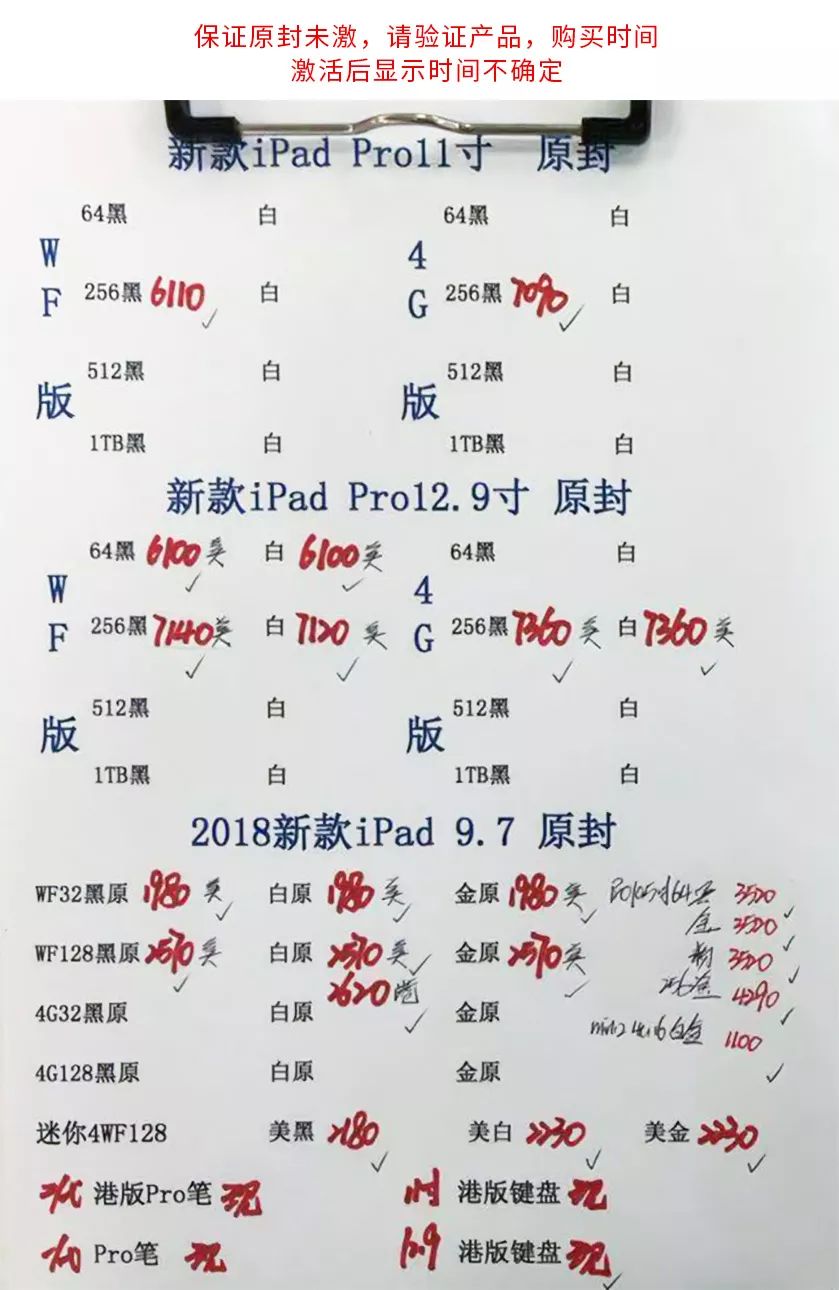 保证原封未激，请验证产品，购买时间
激活后显示时间不确定
新款iPad Pro11寸 原封
WF版
64黑 白
256黑 6110 白
512黑 白
1TB黑 白
4G版
64黑 白
256黑 7090 白
512黑 白
1TB黑 白
新款iPad Pro12.9寸 原封
WF版
64黑 6100 美 白 6100 美
256黑 7140 美 白 7120 美
512黑 白
1TB黑 白
4G版
64黑 白
256黑 7360 美 白 7360 美
512黑 白
1TB黑 白
2018新款iPad 9.7 原封
WF32黑原 1980 美 白原 1980 美 金原 1980 美
WF128黑原 2570 美 白原 2570 美 金原 2570 美
2620 港
4G32黑原 白原 金原
4G128黑原 白原 金原
64 3520
金 3520
3520
256金 4290
mini2 白 1100
迷你4WF128 美黑 2180 美白 2230 美金 2230
港版Pro笔 现 港版键盘 现
Pro笔 现 12.9 港版键盘 现